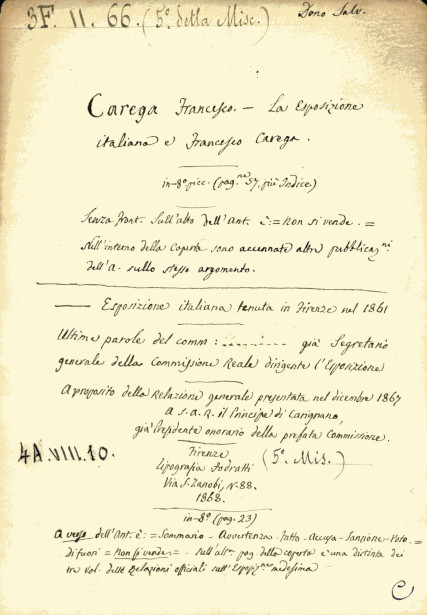 3F. II. 66. (5º della Misc.) Dono Salv.
Carega Francesco. — La Esposizione
italiana e Francesco Carega.
in-8º picc. (pag.ne 57, più Indice)
Senza front. Sull'alto dell'Ant. è: = Non si vende. =
Nell'interno della Coperta sono accennate altre pubblicaz.ni
dell'A. sullo stesso argomento.
— Esposizione italiana tenuta in Firenze nel 1861
Ultime parole del comm: .......... già Segretario
generale della Commissione Reale dirigente l'Esposizione
A proposito della Relazione generale presentata nel dicembre 1867
A S. A. R. il Principe di Carignano,
già Presidente onorario della prefata Commissione.
4A.VIII.10.
Firenze (5º Mis.)
Tipografia Fodratti
Via S. Zanobi, N. 88.
1868.
in-8º (pag. 23)
A verso dell'Ant. è: = Sommario - Avvertenza - Fatto - Accusa - Sanzione - Voto -
di fuori = Non si vende = - Sull'ult. pag. della coperta è una distinta dei
tre Vol. delle Relazioni officiali sull'Esposiz.ne medesima
C